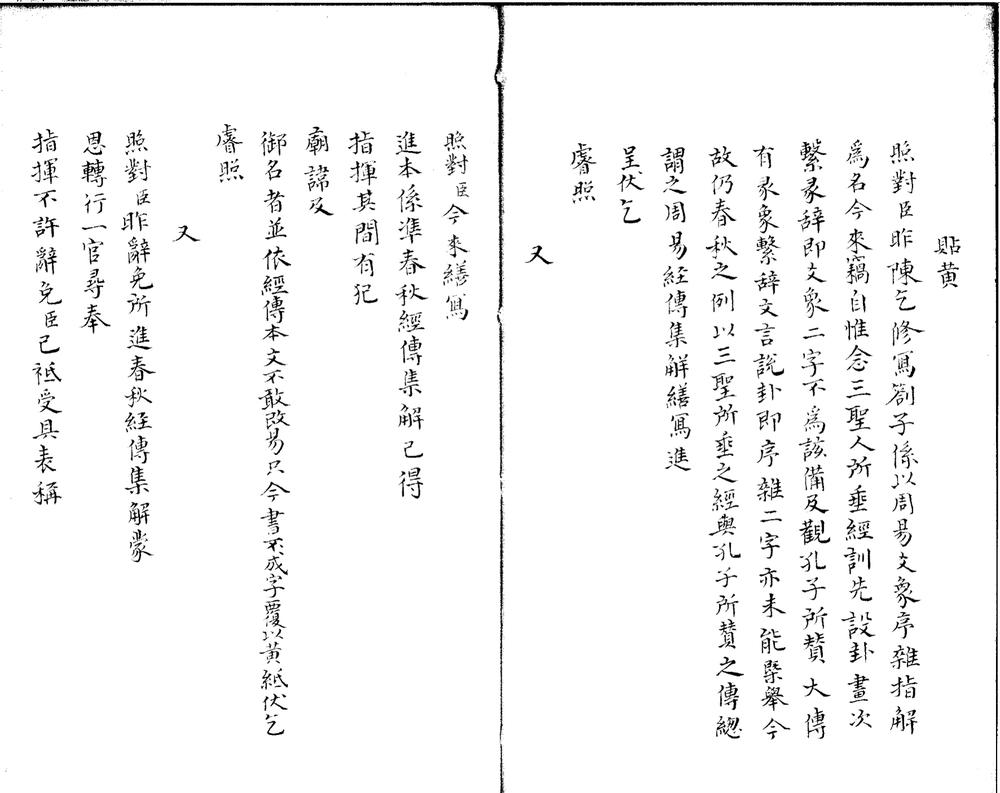 貼黄
照對臣昨陳乞修寫劄子係以周易爻象序雜指解
爲名今來竊自惟念三聖人所垂經訓先設卦畫次
繫彖辞即爻象二字不爲該備及觀孔子所賛大傳
有彖象繫辞文言說卦即序雜二字亦未能槩舉今
故仍春秋之例以三聖所垂之經與孔子所賛之傳緫
謂之周易経傳集解繕寫進
呈伏乞
睿照
又
照對臣今來繕寫
進本係凖春秋經傳集解已得
指揮其間有犯
廟諱及
御名者並依經傳本文不敢改易只今書不成字覆以黄紙伏乞
睿照
又
照對臣昨辭免所進春秋経傳集解蒙
恩轉行一官尋奉
指揮不許辭免臣已祗受具表稱